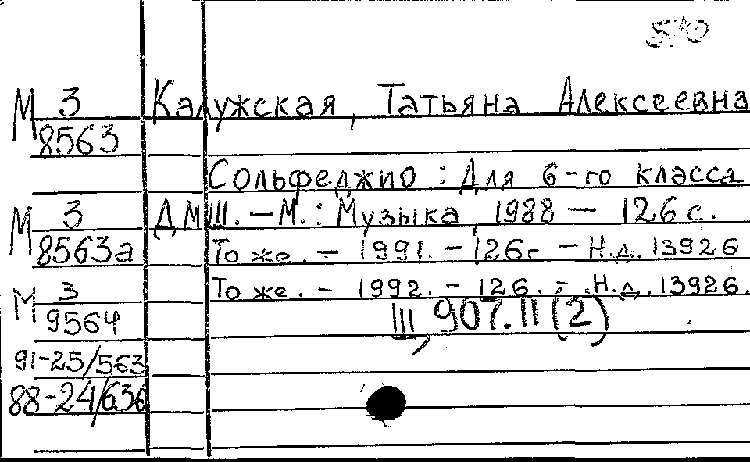 М 3 Калужская, Татьяна Алексеевна
8563
Сольфеджио: Для 6-го класса
М 3 ДМШ. - М.: Музыка, 1988 - 126 с.
8563а То же. - 1991. - 126с - Н.д. 13926
М 3 То же. - 1992. - 126. - Н.д. 13926.
9564 Щ 907.11(2)
91-25/563
88-24/636